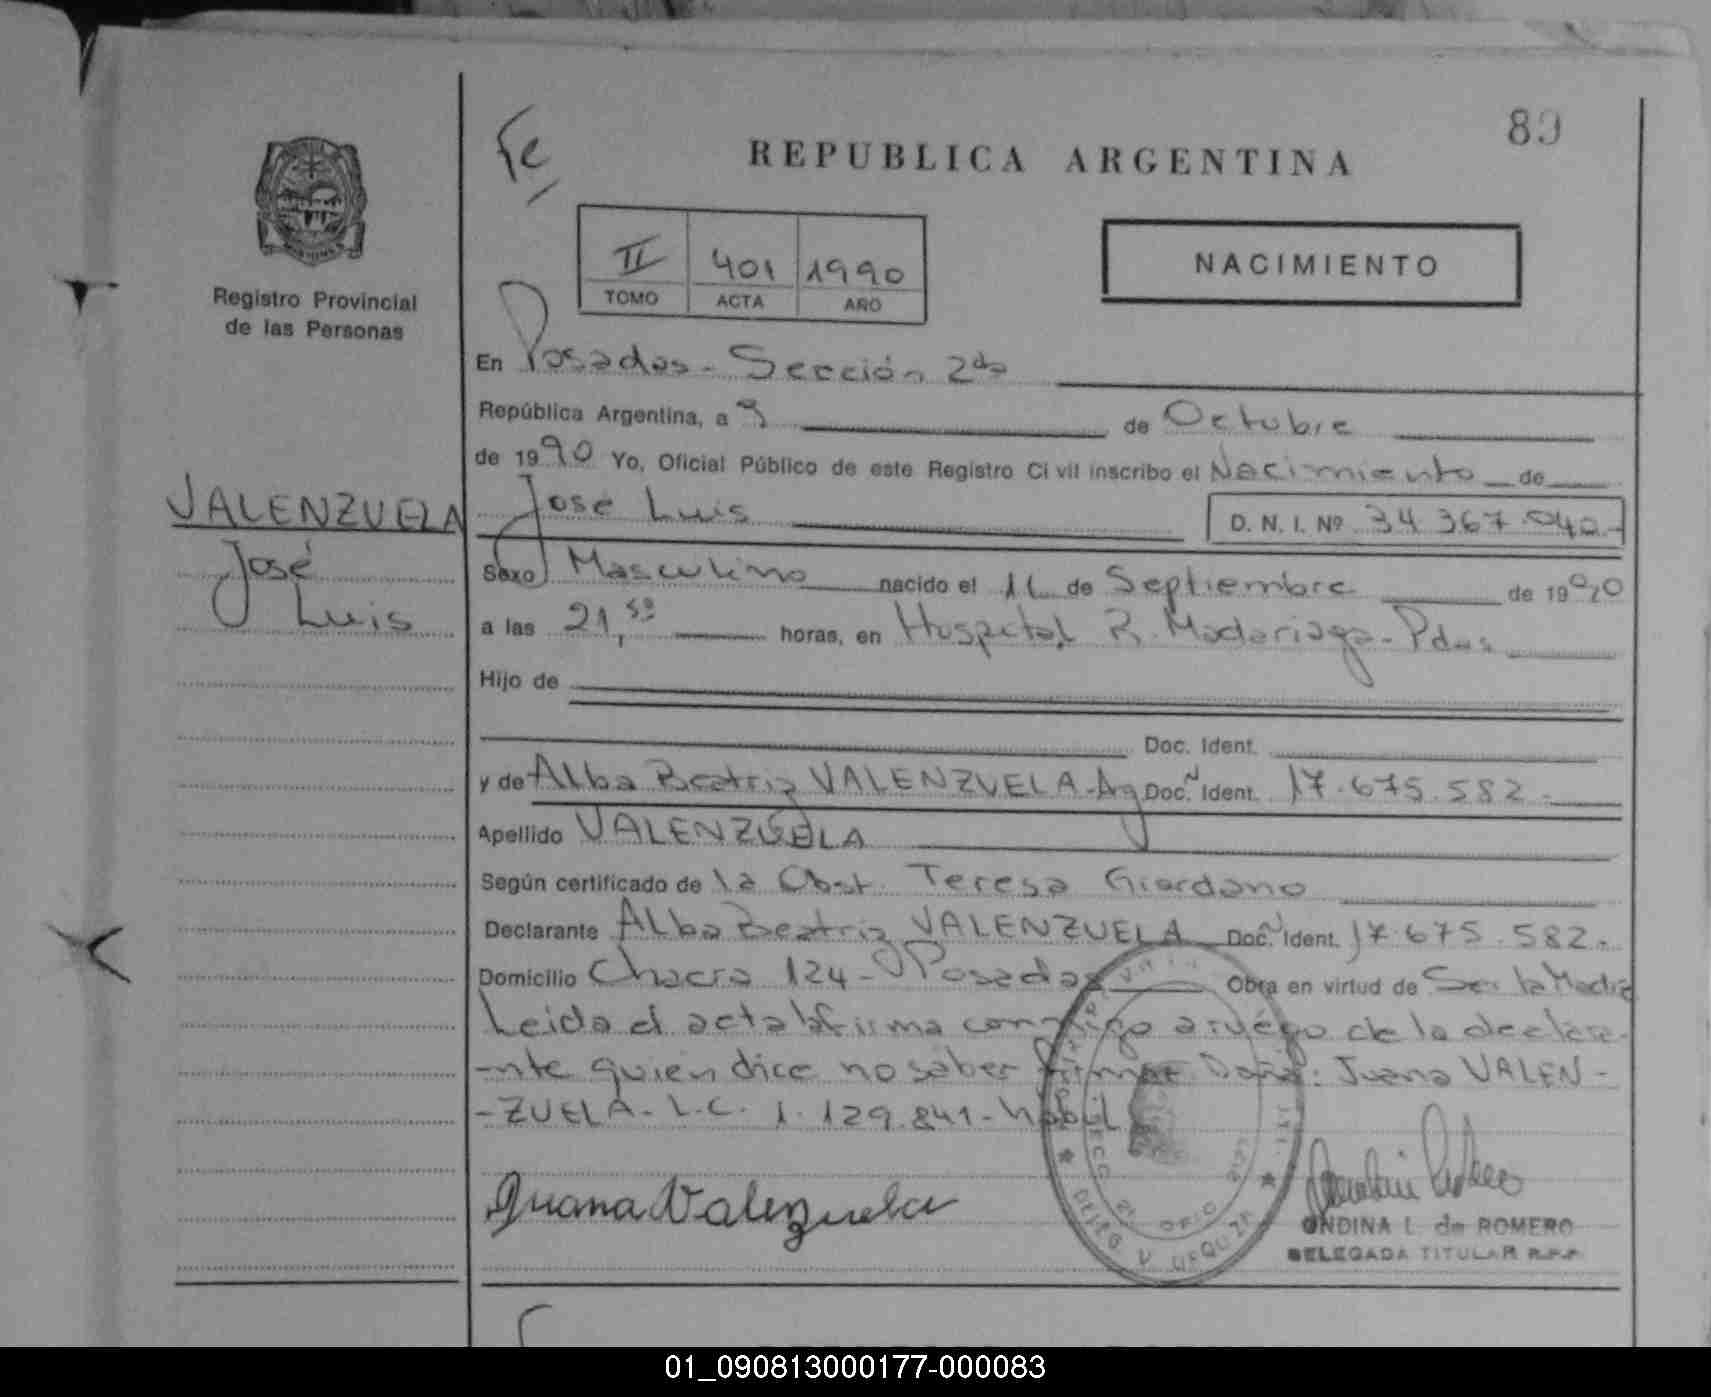 89
Fe
REPUBLICA ARGENTINA
II 401 1990
TOMO ACTA AÑO
NACIMIENTO
Registro Provincial
de las Personas
En Posadas - Sección 2da
República Argentina, a 9 de Octubre
de 1990 Yo, Oficial Público de este Registro Civil inscribo el Nacimiento de
VALENZUELA
José
Luis
José Luis D. N. I. Nº 34.367.042.-
Sexo Masculino nacido el 11 de Septiembre de 1990
a las 21,50 horas, en Hospital R. Madariaga - Pdas
Hijo de
Doc. Ident.
y de Alba Beatriz VALENZUELA - Ag Doc. N Ident. 17.675.582.-
Apellido VALENZUELA
Según certificado de la Obst. Teresa Giordano
Declarante Alba Beatriz VALENZUELA Doc. N Ident. 17.675.582.
Domicilio Chacra 124 - Posadas Obra en virtud de Ser la Madre
Leida el acta la firma conmigo a ruego de la declara-
-nte quien dice no saber firmar Doña: Juana VALEN-
-ZUELA - L.C. 1.129.841 - hábil
Juana Valenzuela
ONDINA L. de ROMERO
DELEGADA TITULAR R.P.P.
DELEG. V. URQUIZA
01_090813000177-000083